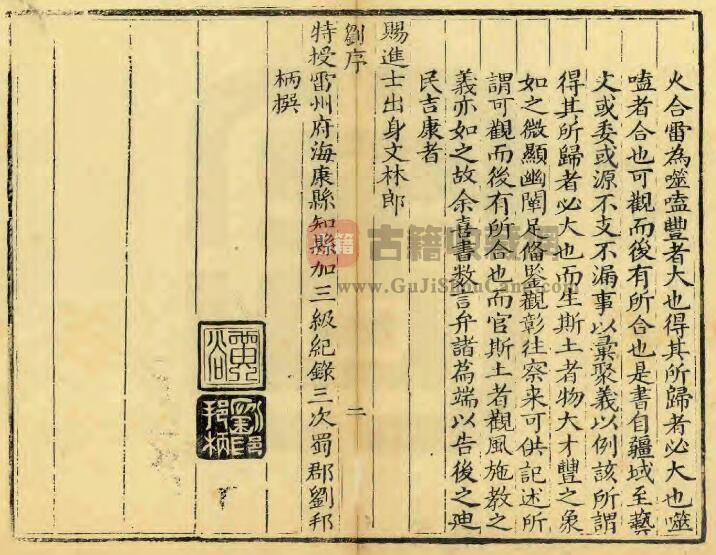 火合雷為噬嗑豐者大也得其所歸者必大也噬
嗑者合也可觀而後有所合也是書自疆域至藝
文或委或源不支不漏事以彙聚義以例該所謂
得其所歸者必大也而生斯土者物大才豐之象
如之微顯幽闡足備鑒觀彰往察来可供記述所
謂可觀而後有所合也而官斯土者觀風施教之
義亦如之故余喜書数言弁諸篇端以告後之廸
民吉康者
賜進士出身文林郎
劉序
二
特授雷州府海康縣知縣加三級紀錄三次蜀郡劉邦
柄撰
劉邦柄印
古籍收藏网
www.GuJiShouCang.com